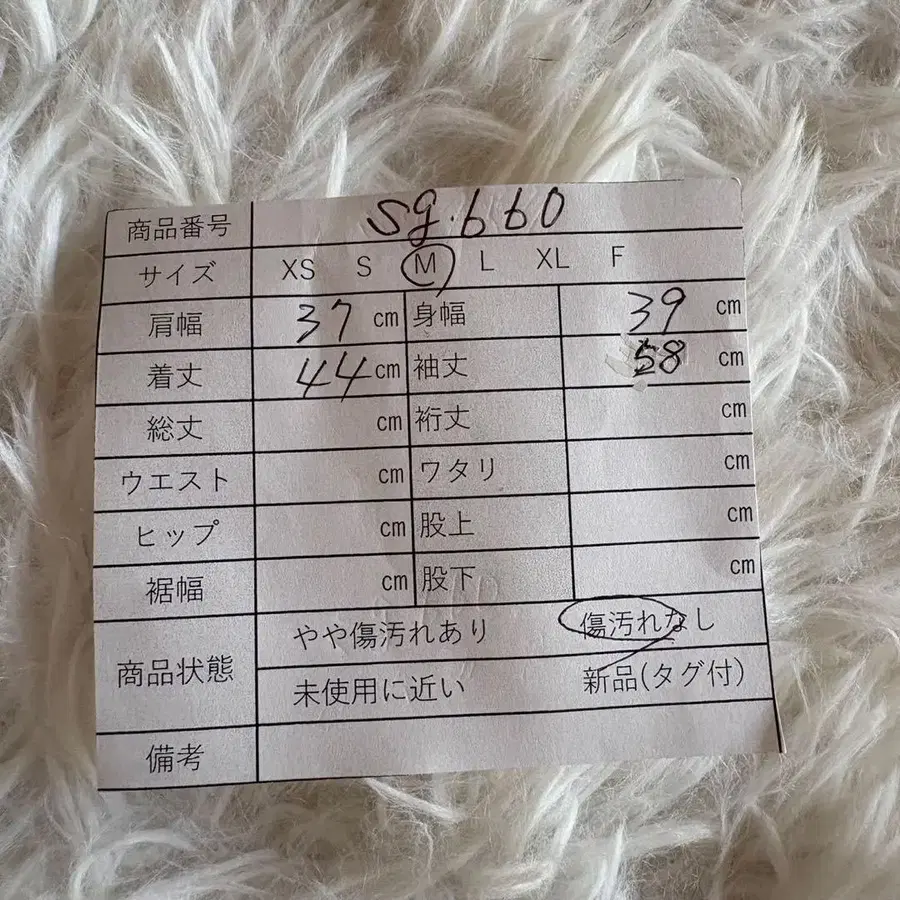 商品番号 sg.660
サイズ XS S M L XL F
肩幅 37 cm 身幅 39 cm
着丈 44 cm 袖丈 58 cm
総丈 cm 裄丈 cm
ウエスト cm ワタリ cm
ヒップ cm 股上 cm
裾幅 cm 股下 cm
商品状態 やや傷汚れあり 傷汚れなし
未使用に近い 新品(タグ付)
備考